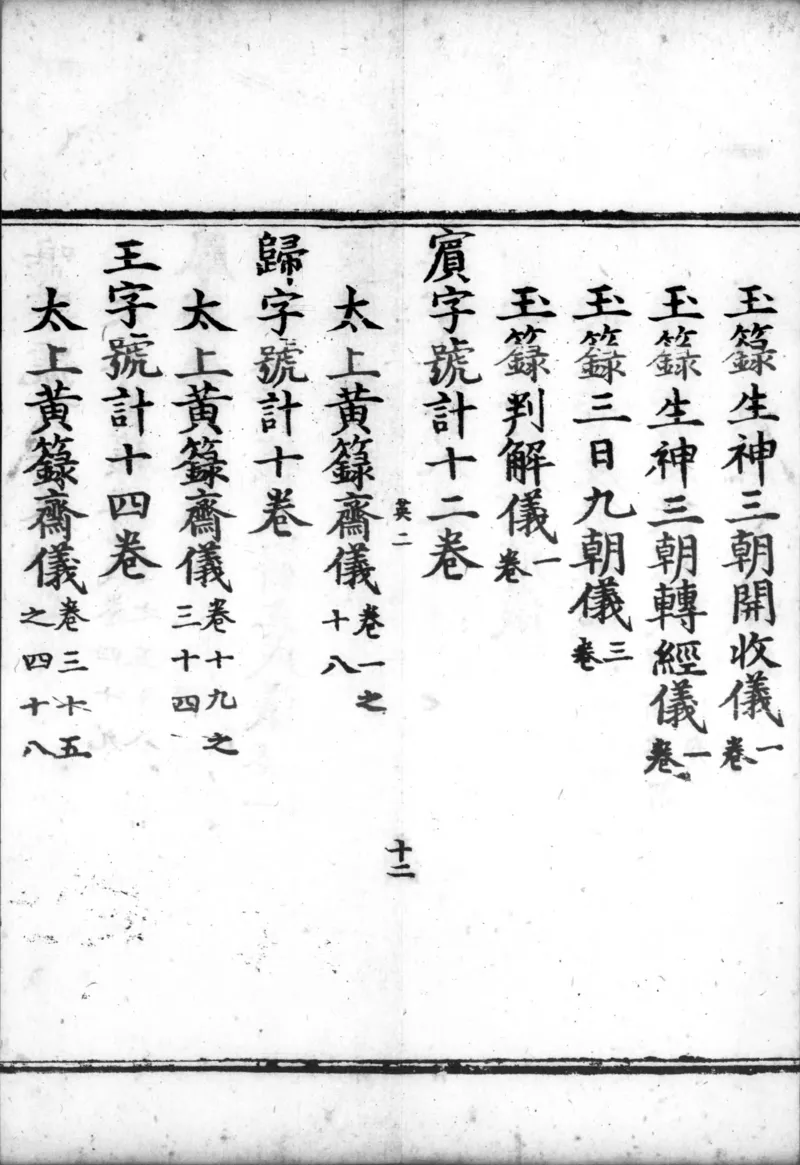 玉籙生神三朝開收儀一卷
玉籙生神三朝轉經儀一卷
玉籙三日九朝儀三卷
玉籙判解儀一卷
賔字號計十二卷
太上黄籙齋儀卷一之十八
英二
十二
歸字號計十卷
太上黄籙齋儀卷十九之三十四
王字號計十四卷
太上黄籙齋儀卷三十五之四十八